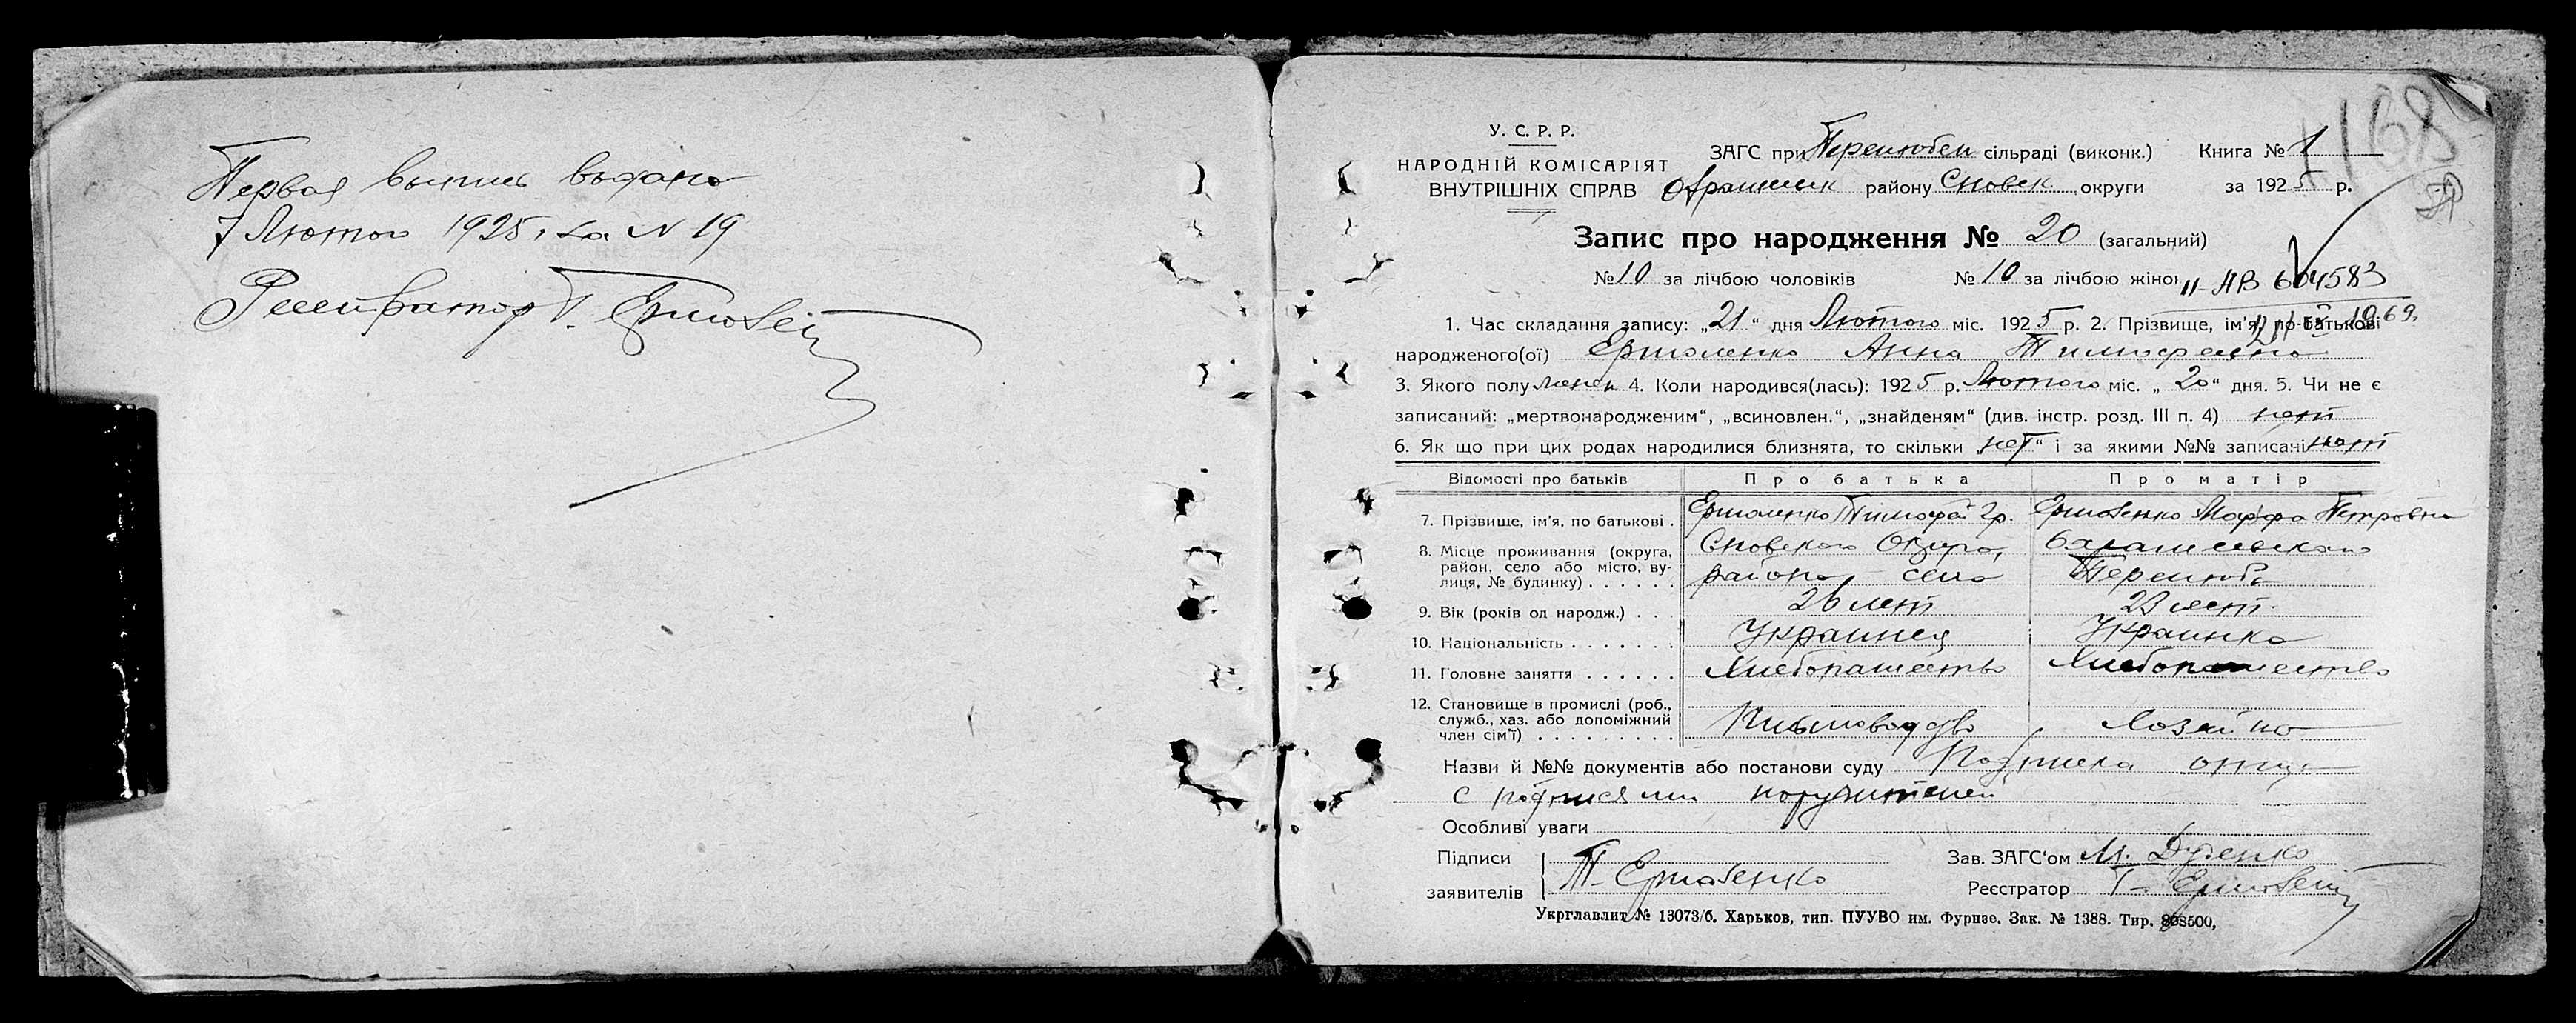 Первая выпись выдана
7 Лютого 1925 г. за N 19
Регистратор Г.
У. С. Р. Р.
НАРОДНІЙ КОМІСАРІЯТ
ВНУТРІШНІХ СПРАВ
ЗАГС при Перелюбск сільраді (виконк.) Книга № 1
району Сновск округи за 1925 р.
168
Запис про народження № 20 (загальний)
№ 10 за лічбою чоловіків № 10 за лічбою жінок
II-АВ 604583
1969
1. Час складання запису: „21“ дня Лютого міс. 1925 р. 2. Прізвище, ім'я, по-батькові
народженого(ої) Ермоленко Анна Тимофеевна
3. Якого полу женск 4. Коли народився(лась): 1925 р. Лютого міс. „20“ дня. 5. Чи не є
записаний: „мертвонародженим“, „всиновлен.“, „знайденям“ (див. інстр. розд. III п. 4) нет
6. Як що при цих родах народилися близнята, то скільки „нет“ і за якими №№ записані нет
Відомості про батьків Про батька Про матір
7. Прізвище, ім'я, по батькові . Ермоленко Тимофей Гр. Ермоленко Марфа Петровна
8. Місце проживання (округа, район, село або місто, вулиця, № будинку) . . . . . . Сновского Округа,
района села Перелюба
9. Вік (років од народж.) . . 26 лет 23 лет.
10. Національність . . . . . . . Украинец Украинка
11. Головне заняття . . . . . . Хлебопашество Хлебопашество
12. Становище в промислі (роб., служб., хаз. або допоміжний член сім'ї) . . . . . . . . . Письмоводство Хозяйка
Назви й №№ документів або постанови суду Подписка отца
с подписями поручителей
Особливі уваги
Підписи заявителів Т. Ермоленко
Зав. ЗАГС'ом М. Дуденко
Реєстратор Г.
Укрглавлит № 13073/б. Харьков, тип. ПУУВО им. Фурнзе. Зак. № 1388. Тир. 808500,